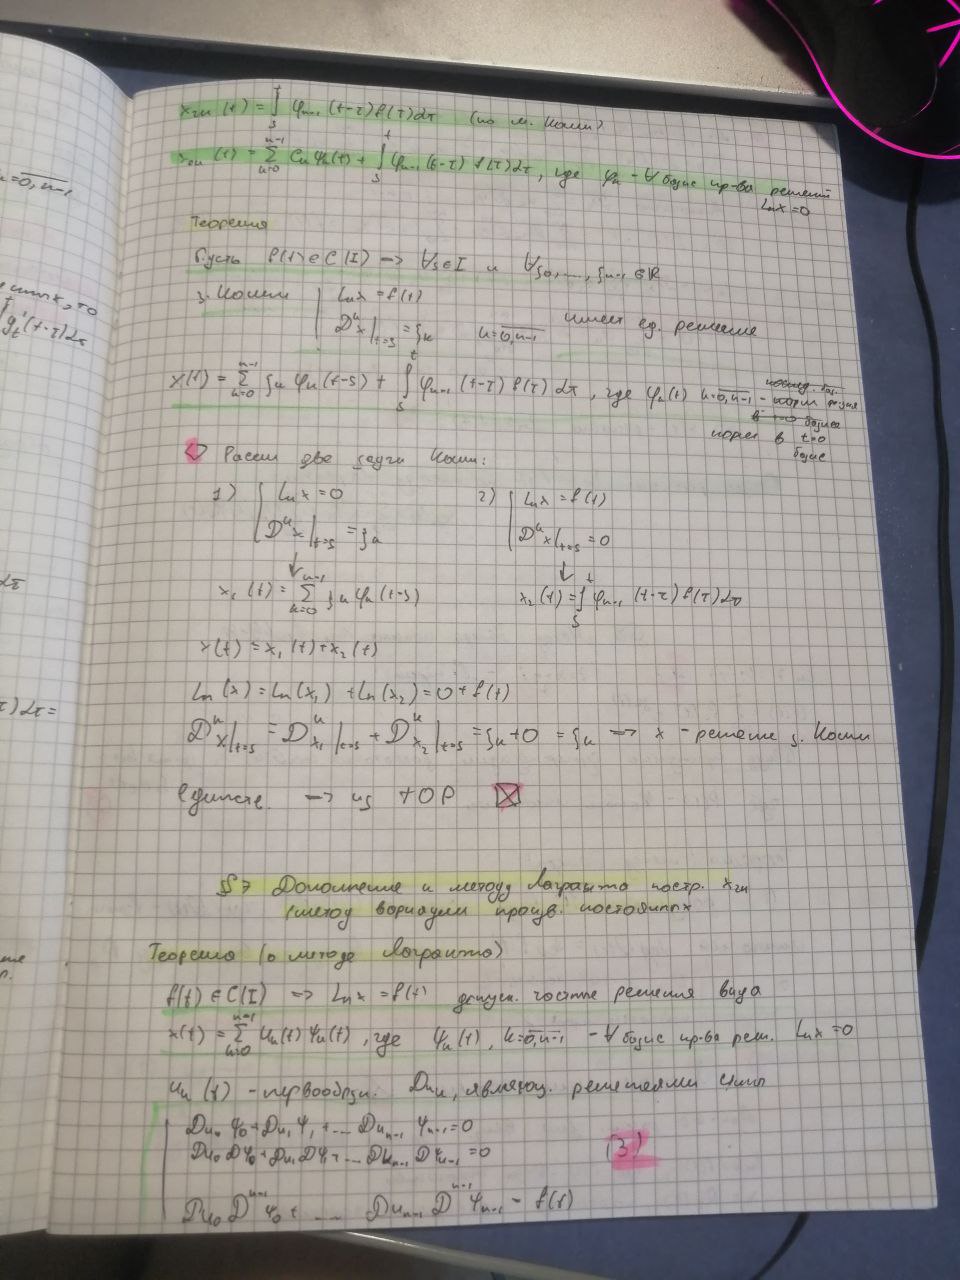 x_чн (t) = ∫_s^t φ_{n-1} (t-τ) f(τ) dτ (по м. Коши)
x_он (t) = ∑_{k=0}^{n-1} C_k ψ_k(t) + ∫_s^t φ_{n-1} (t-τ) f(τ) dτ, где ψ_k - ∀ базис пр-ва решений
L_n x = 0
Теорема
Пусть f(t) ∈ C(I) → ∀s ∈ I и ∀ξ_0, ..., ξ_{n-1} ∈ R
з. Коши
L_n x = f(t)
D^k x|_{t=s} = ξ_k k = 0,n-1 имеет ед. решение
x(t) = ∑_{k=0}^{n-1} ξ_k φ_k (t-s) + ∫_s^t φ_{n-1} (t-τ) f(τ) dτ, где φ_k(t) k = 0,n-1 - норм
норм в t=0
базис
Рассм две задчи Коши:
1) L_n x = 0 2) L_n x = f(t)
D^k x|_{t=s} = ξ_k D^k x|_{t=s} = 0
x_1 (t) = ∑_{k=0}^{n-1} ξ_k φ_k (t-s) x_2 (t) = ∫_s^t φ_{n-1} (t-τ) f(τ) dτ
x(t) = x_1 (t) + x_2 (t)
L_n (x) = L_n(x_1) + L_n(x_2) = 0 + f(t)
D^k x|_{t=s} = D^k x_1|_{t=s} + D^k x_2|_{t=s} = ξ_k + 0 = ξ_k → x - решение з. Коши
Единств. → из ТОР ☒
§7 Дополнение к методу Лагранжа постр. x_чн
(метод вариации произв. постоянных
Теорема (о методе Лагранжа)
f(t) ∈ C(I) ⇒ L_n x = f(t) допуск. частные решения вида
x(t) = ∑_{k=0}^{n-1} u_k(t) ψ_k(t), где ψ_k (t), k = 0,n-1 - ∀ базис пр-ва реш. L_n x = 0
u_k (t) - первообрзн. Du_k, являющ. решениями
Du_0 ψ_0 + Du_1 ψ_1 + ... Du_{n-1} ψ_{n-1} = 0
Du_0 Dψ_0 + Du_1 Dψ_1 + ... Du_{n-1} Dψ_{n-1} = 0 (3)
Du_0 D^{n-1} ψ_0 + ... Du_{n-1} D^{n-1} ψ_{n-1} = f(t)